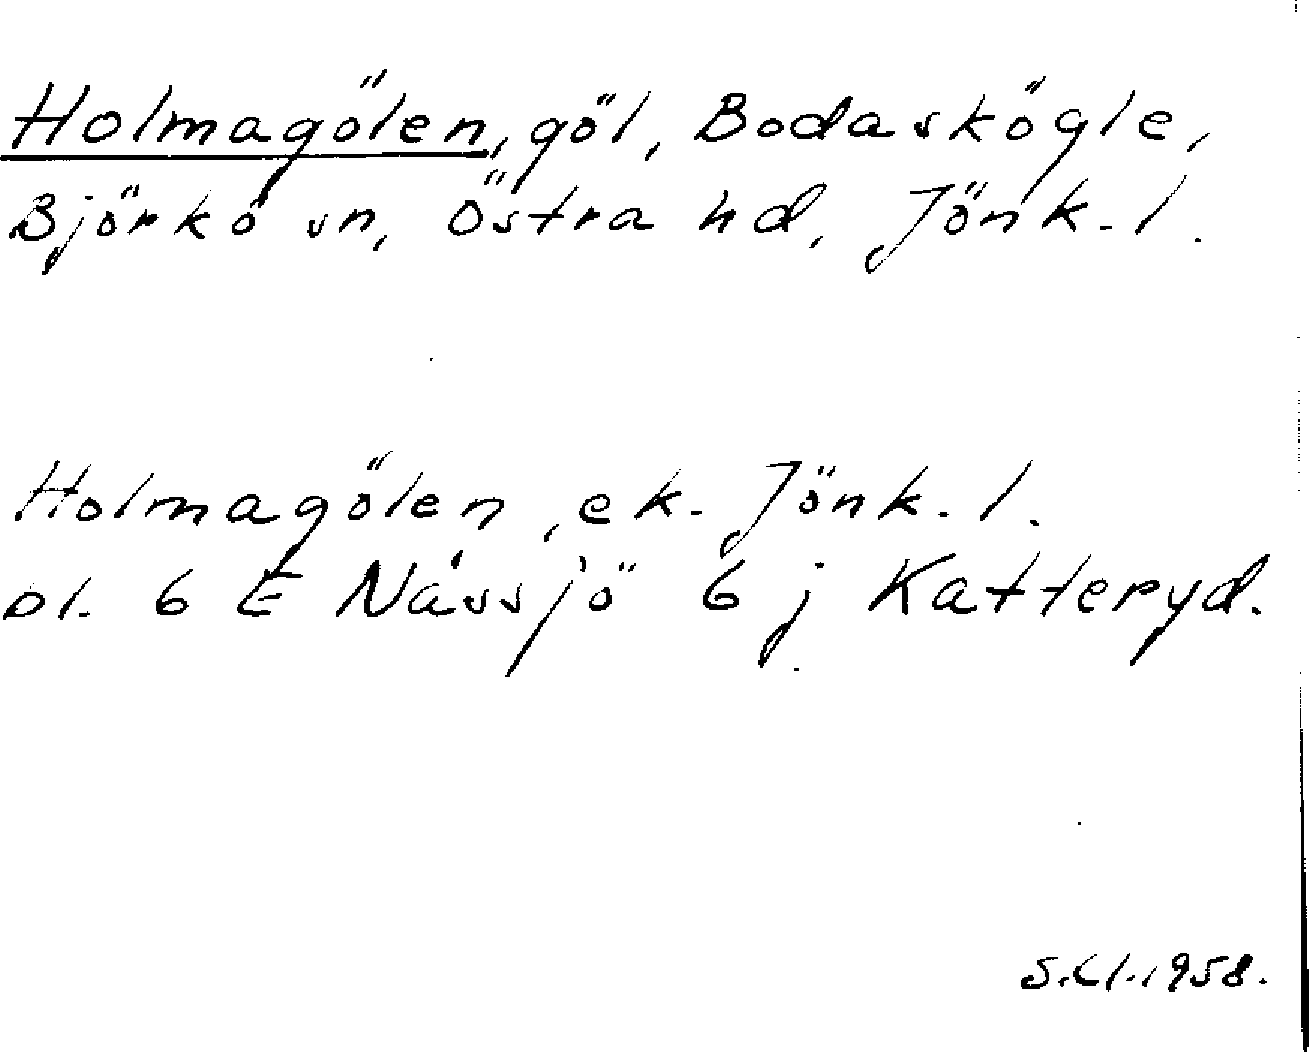 Holmagölen, göl, Bodaskögle,
Björkö sn, Östra hd, Jönk.l.
Holmagölen, ek. Jönk.l.
bl. 6 E Nässjö 6 j Katteryd.
S.Cl.1958.